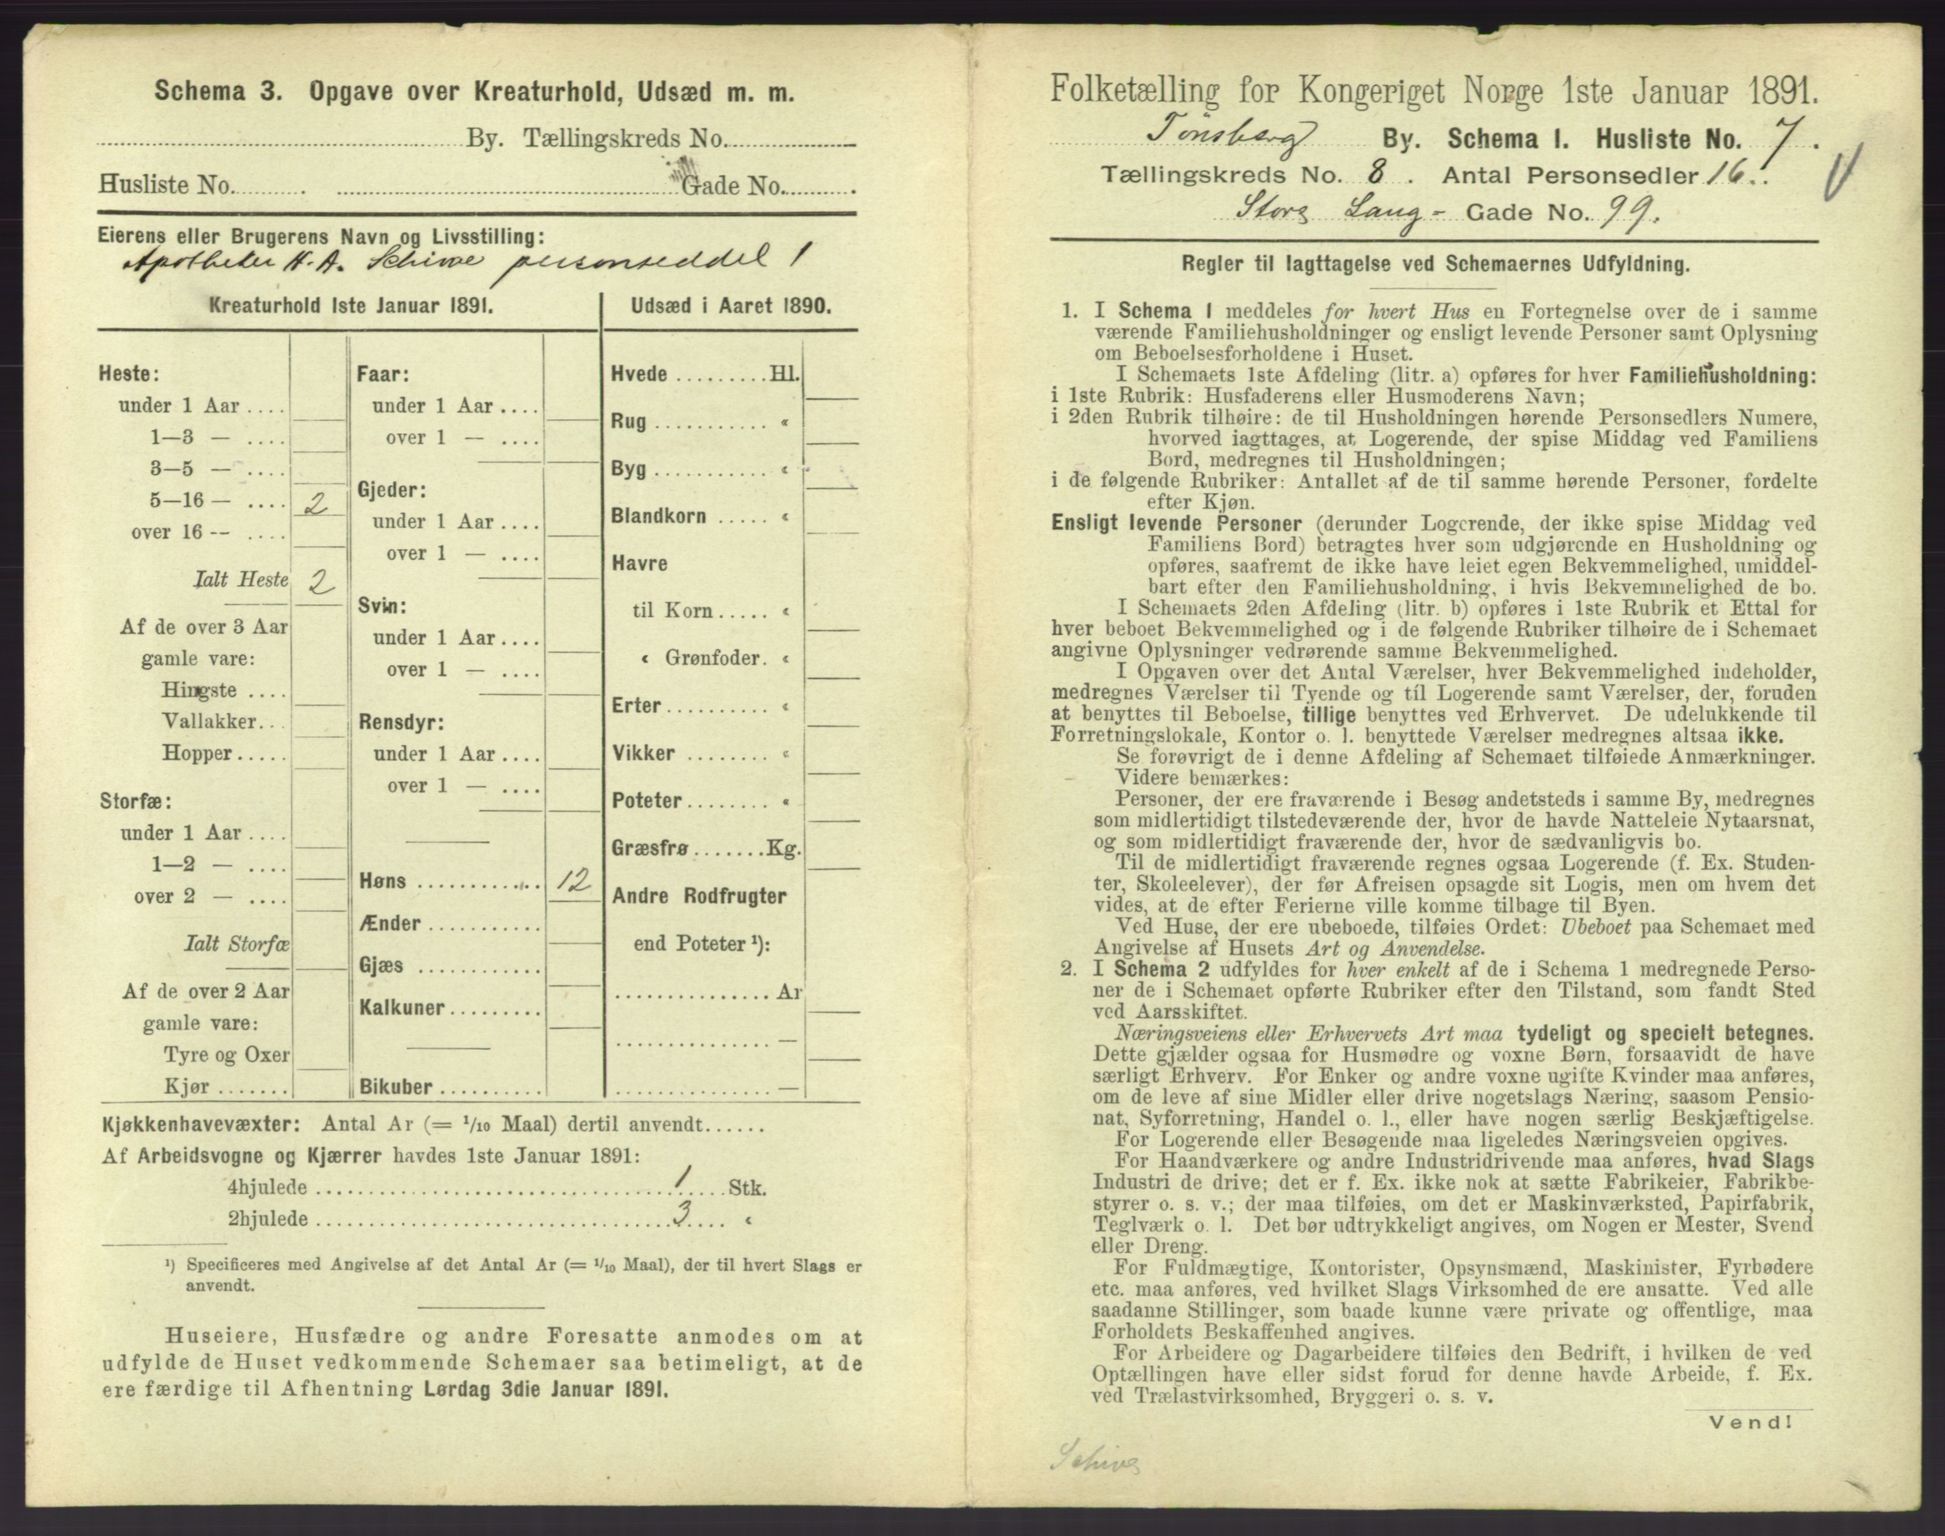 Schema 3. Opgave over Kreaturhold, Udsæd m. m.
By. Tællingskreds No.
Husliste No. Gade No.
Eierens eller Brugerens Navn og Livsstilling:
Apotheker H. A. Schive personseddel 1
Kreaturhold 1ste Januar 1891.
Heste:
under 1 Aar ....
1—3 — ....
3—5 — ....
5—16 — .... 2
over 16 -- ....
Ialt Heste 2
Af de over 3 Aar
gamle vare:
Hingste ....
Vallakker...
Hopper.....
Storfæ:
under 1 Aar ....
1—2 — ....
over 2 — ....
Ialt Storfæ
Af de over 2 Aar
gamle vare:
Tyre og Oxer
Kjør .......
Faar:
under 1 Aar ....
over 1 — ....
Gjeder:
under 1 Aar ....
over 1 — ....
Svin:
under 1 Aar ....
over 1 — ....
Rensdyr:
under 1 Aar ....
over 1 — ....
Høns ............ 12
Ænder ...........
Gjæs ............
Kalkuner.........
Bikuber ..........
Udsæd i Aaret 1890.
Hvede .........Hl.
Rug ........... «
Byg ........... «
Blandkorn ..... «
Havre
til Korn..... «
« Grønfoder. «
Erter.......... «
Vikker ........ «
Poteter........ «
Græsfrø.......Kg.
Andre Rodfrugter
end Poteter ¹):
............... Ar
............... —
............... —
Kjøkkenhavevæxter: Antal Ar (= 1/10 Maal) dertil anvendt......
Af Arbeidsvogne og Kjærrer havdes 1ste Januar 1891:
4hjulede ........ 1 .... Stk.
2hjulede ........ 3 .... «
¹) Specificeres med Angivelse af det Antal Ar (= 1/10 Maal), der til hvert Slags er
anvendt.
Huseiere, Husfædre og andre Foresatte anmodes om at
udfylde de Huset vedkommende Schemaer saa betimeligt, at de
ere færdige til Afhentning Lørdag 3die Januar 1891.
Folketælling for Kongeriget Norge 1ste Januar 1891.
Tönsberg By. Schema I. Husliste No. 7.
Tællingskreds No. 8. Antal Personsedler 16.
Store Lang- Gade No. 99.
Regler til Iagttagelse ved Schemaernes Udfyldning.
1. I Schema 1 meddeles for hvert Hus en Fortegnelse over de i samme
værende Familiehusholdninger og ensligt levende Personer samt Oplysning
om Beboelsesforholdene i Huset.
I Schemaets 1ste Afdeling (litr. a) opføres for hver Familiehusholdning:
i 1ste Rubrik: Husfaderens eller Husmoderens Navn;
i 2den Rubrik tilhøire: de til Husholdningen hørende Personsedlers Numere,
hvorved iagttages, at Logerende, der spise Middag ved Familiens
Bord, medregnes til Husholdningen;
i de følgende Rubriker: Antallet af de til samme hørende Personer, fordelte
efter Kjøn.
Ensligt levende Personer (derunder Logerende, der ikke spise Middag ved
Familiens Bord) betragtes hver som udgjørende en Husholdning og
opføres, saafremt de ikke have leiet egen Bekvemmelighed, umiddel-
bart efter den Familiehusholdning, i hvis Bekvemmelighed de bo.
I Schemaets 2den Afdeling (litr. b) opføres i 1ste Rubrik et Ettal for
hver beboet Bekvemmelighed og i de følgende Rubriker tilhøire de i Schemaet
angivne Oplysninger vedrørende samme Bekvemmelighed.
I Opgaven over det Antal Værelser, hver Bekvemmelighed indeholder,
medregnes Værelser til Tyende og til Logerende samt Værelser, der, foruden
at benyttes til Beboelse, tillige benyttes ved Erhvervet. De udelukkende til
Forretningslokale, Kontor o. l. benyttede Værelser medregnes altsaa ikke.
Se forøvrigt de i denne Afdeling af Schemaet tilføiede Anmærkninger.
Videre bemærkes:
Personer, der ere fraværende i Besøg andetsteds i samme By, medregnes
som midlertidigt tilstedeværende der, hvor de havde Natteleie Nytaarsnat,
og som midlertidigt fraværende der, hvor de sædvanligvis bo.
Til de midlertidigt fraværende regnes ogsaa Logerende (f. Ex. Studen-
ter, Skoleelever), der før Afreisen opsagde sit Logis, men om hvem det
vides, at de efter Ferierne ville komme tilbage til Byen.
Ved Huse, der ere ubeboede, tilføies Ordet: Ubeboet paa Schemaet med
Angivelse af Husets Art og Anvendelse.
2. I Schema 2 udfyldes for hver enkelt af de i Schema 1 medregnede Perso-
ner de i Schemaet opførte Rubriker efter den Tilstand, som fandt Sted
ved Aarsskiftet.
Næringsveiens eller Erhvervets Art maa tydeligt og specielt betegnes.
Dette gjælder ogsaa for Husmødre og voxne Børn, forsaavidt de have
særligt Erhverv. For Enker og andre voxne ugifte Kvinder maa anføres,
om de leve af sine Midler eller drive nogetslags Næring, saasom Pensio-
nat, Syforretning, Handel o. l., eller have nogen særlig Beskjæftigelse.
For Logerende eller Besøgende maa ligeledes Næringsveien opgives.
For Haandværkere og andre Industridrivende maa anføres, hvad Slags
Industri de drive; det er f. Ex. ikke nok at sætte Fabrikeier, Fabrikbe-
styrer o. s. v.; der maa tilføies, om det er Maskinværksted, Papirfabrik,
Teglværk o. l. Det bør udtrykkeligt angives, om Nogen er Mester, Svend
eller Dreng.
For Fuldmægtige, Kontorister, Opsynsmænd, Maskinister, Fyrbødere
etc. maa anføres, ved hvilket Slags Virksomhed de ere ansatte. Ved alle
saadanne Stillinger, som baade kunne være private og offentlige, maa
Forholdets Beskaffenhed angives.
For Arbeidere og Dagarbeidere tilføies den Bedrift, i hvilken de ved
Optællingen have eller sidst forud for denne havde Arbeide, f. Ex.
ved Trælastvirksomhed, Bryggeri o. s. v.
Vend!
Schive